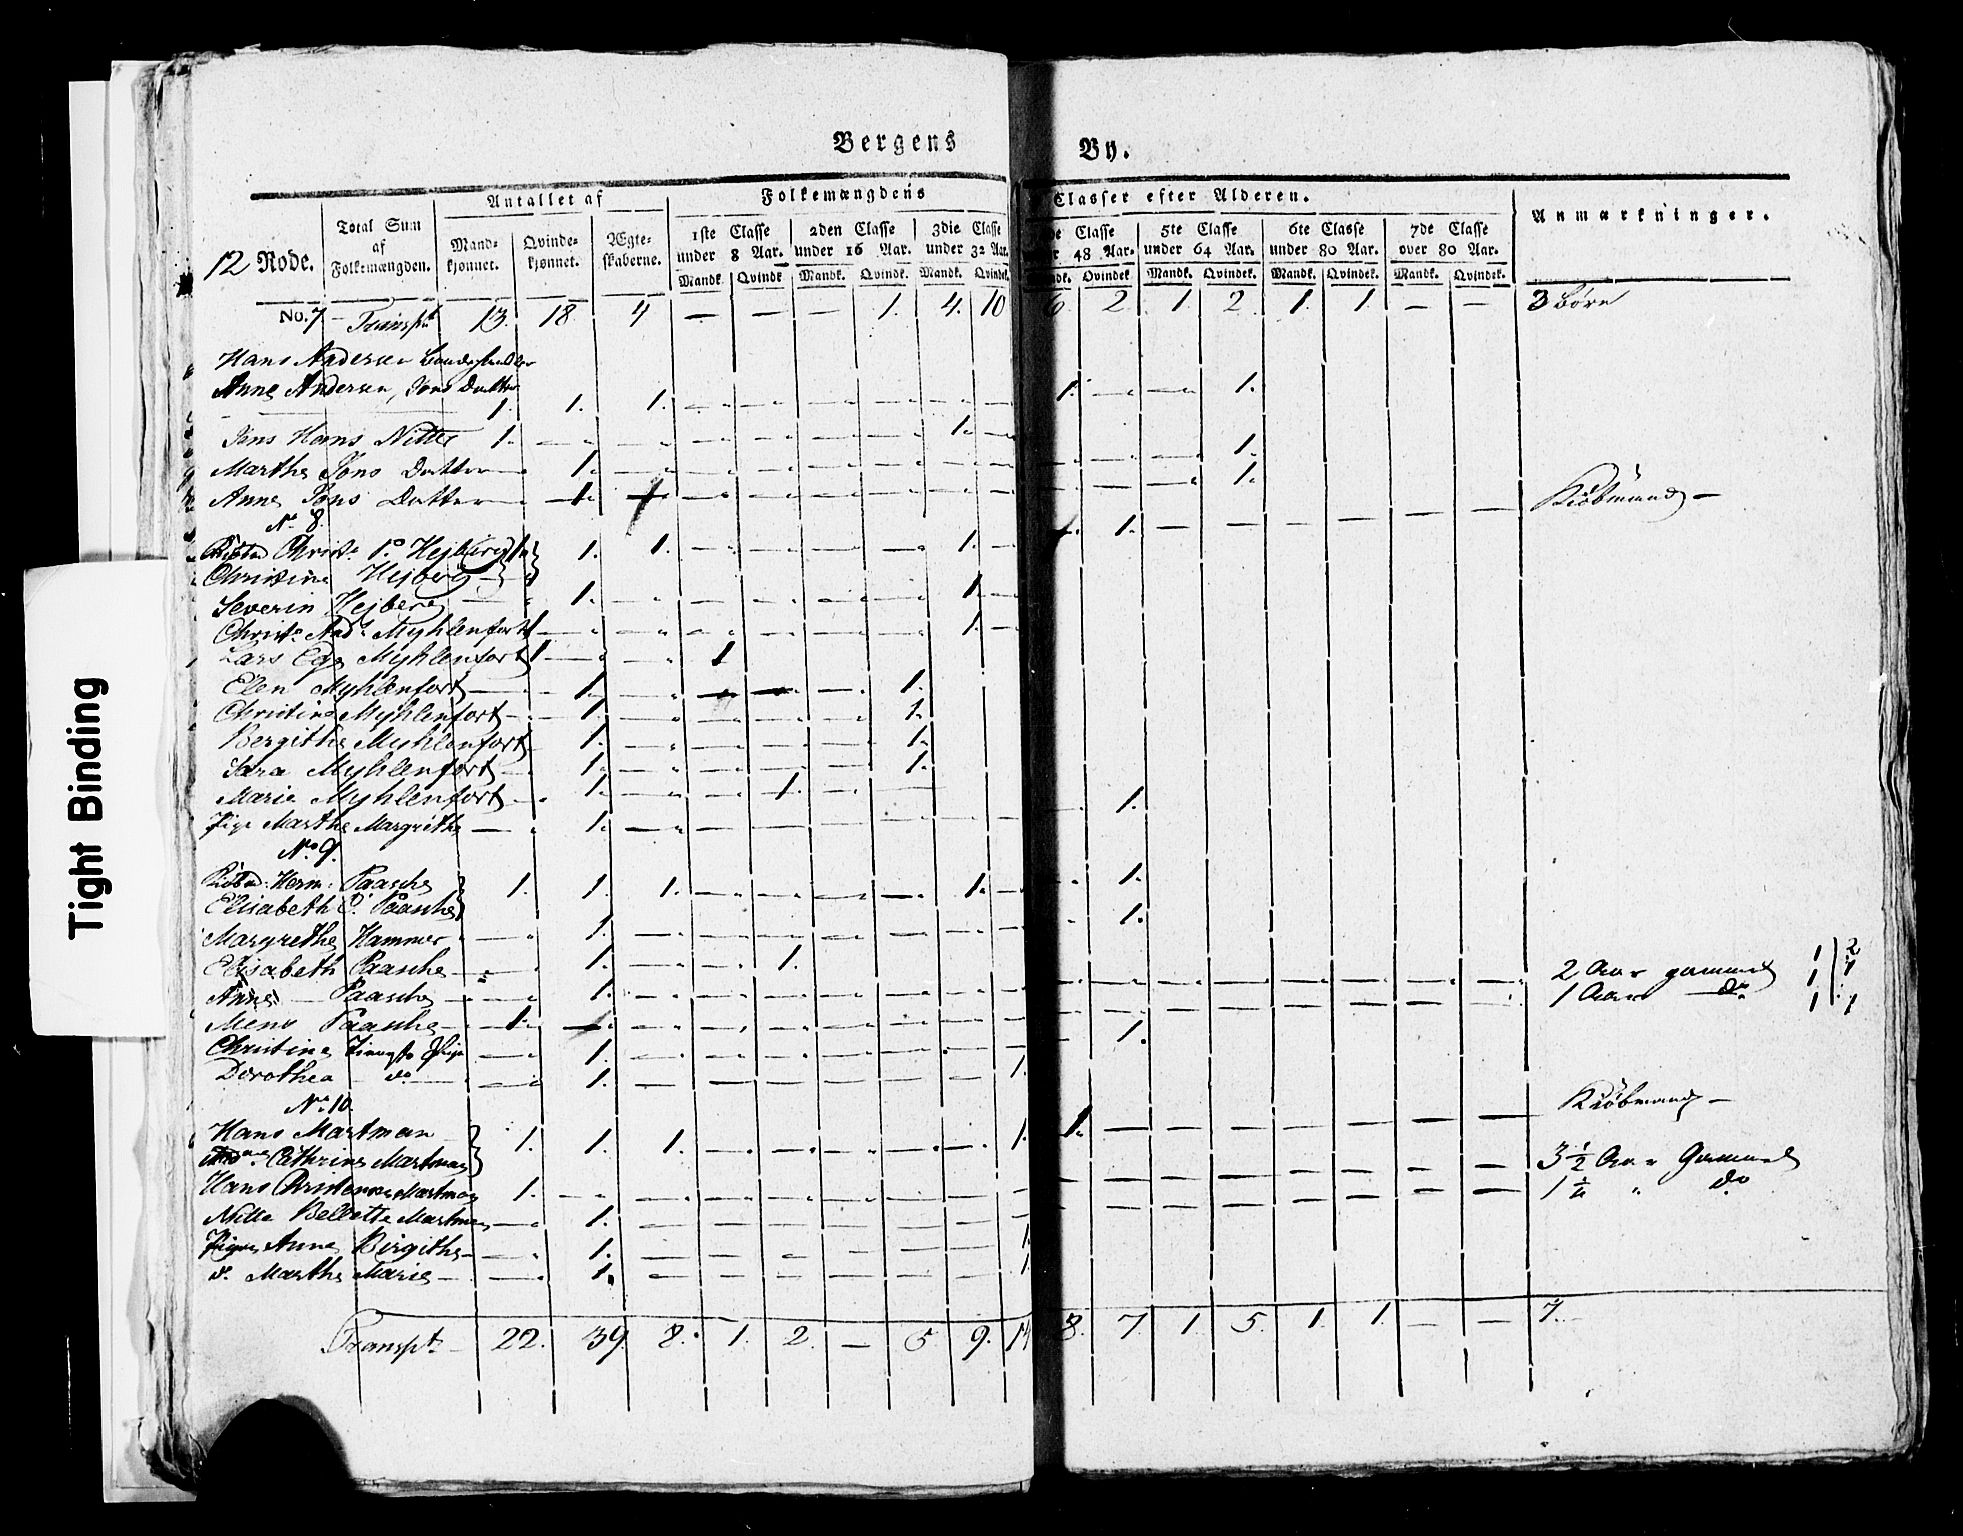 Tight Binding
Bergens By.
Antallet af Folkemængdens Classer efter Alderen. Anmærkninger.
12 Rode. Total Sum af Folkemængden. Mandkjønnet. Qvindekjønnet. Ægteskaberne. 1ste Classe under 8 Aar. 2den Classe under 16 Aar. 3die Classe under 32 Aar. Classe 48 Aar. 5te Classe under 64 Aar. 6te Classe under 80 Aar. 7de Classe over 80 Aar.
Mandk. Qvindk. Mandk. Qvindek. Mandk. Qvindek. Qvindek. Mandk. Qvindek. Mandk. Qvindek. Mandk. Qvindek.
No. 7 – Transpt 13. 18. 4 — — — 1. 4. 10 6 2. 1. 2. 1. 1. — — 3 Børn
Hans Andersen
Anne Andersen, Jons Datter 1. 1. 1. 1. 1.
Jens Hans Nitter 1. 1.
Marthe Jons Datter 1. 1.
Anne Jons Datter 1. 1 1.
No 8. Kiøbmand —
Christ. Hejberg 1. 1. 1. 1.
Christine Hejberg
Severin Hejberg 1. 1.
Christ. And. Myhlenfort 1. 1.
Lars Ege Myhlenfort 1 1
Elen Myhlenfort 1. 1.
Christine Myhlenfort 1. 1.
Bergithe Myhlenfort 1. 1.
Sara Myhlenfort 1. 1.
Marie Myhlenfort 1. 1.
Pige Marthe Margrethe 1. 1.
No 9.
Herm: Paasche 1. 1. 1. 1. 1.
Elisabeth C. Paasche
Margrethe Hammer 1. 1.
Elisabeth Paasche 1. 1.
Anne Paasche 1. 2 Aar gammel
Mens Paasche 1. 1 Aar do
Christine Pige 1. 1.
Dorothea do 1. 1.
No 10.
Hans Martman 1. 1. 1. 1. 1. Kiøbmand —
Cathrine Martman
Hans Martman 1. 3 1/2 Aar Gammel
Nille Martman 1. 1 do
Anne Birgithe 1. 1.
d. Marthe Marie 1. 1.
Transpt 22. 39. 8. 1. 2. — 5 9. 14 8. 7. 1. 5. 1. 1. — — 7.